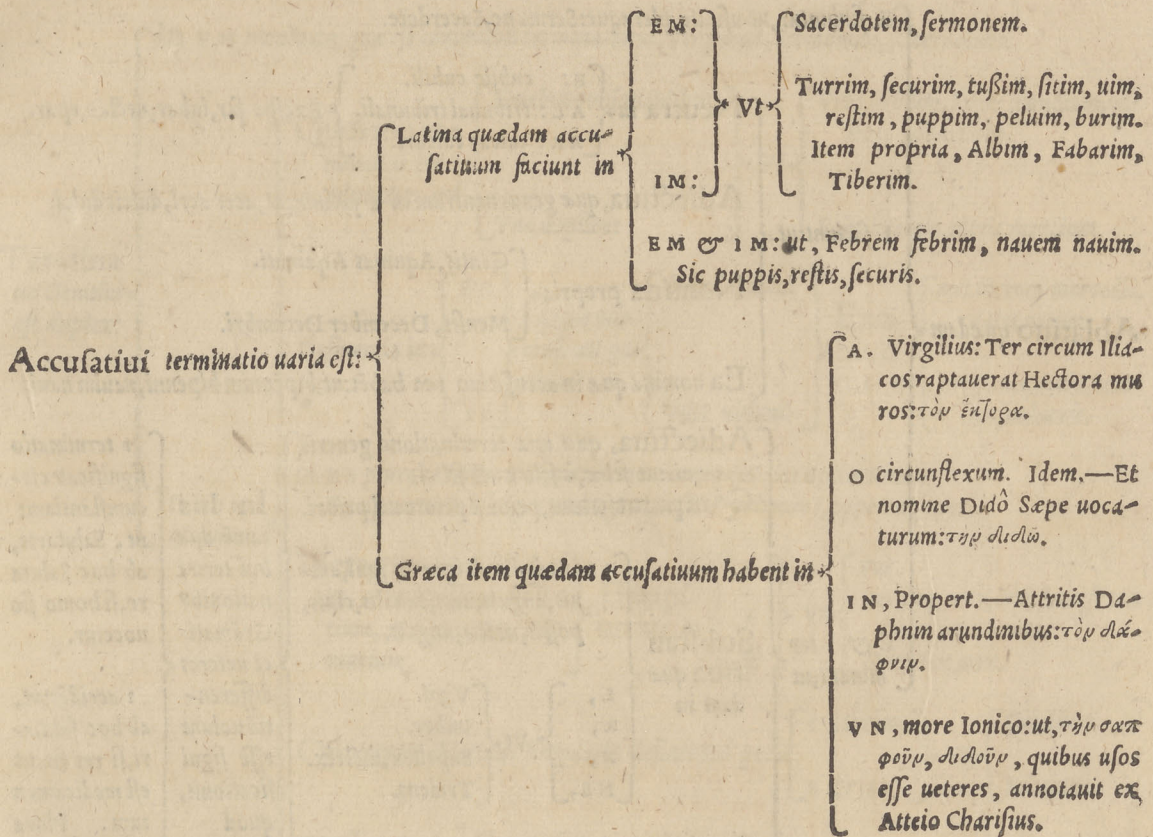 Accuſatiui terminatio uaria eſt:
Latina quædam accu-
ſatiuum faciunt in
EM:
IM:
Vt
Sacerdotem, ſermonem.
Turrim, ſecurim, tußim, ſitim, uim,
reſtim, puppim, peluim, burim.
Item propria, Albim, Fabarim,
Tiberim.
EM & IM: ut, Febrem febrim, nauem nauim.
Sic puppis, reſtis, ſecuris.
Græca item quædam accuſatiuum habent in
A. Virgilius: Ter circum Ilia-
cos raptauerat Hectora mu
ros: τὸν ἕκτορα.
O circunflexum. Idem.—Et
nomine Didô Sæpe uoca-
turum: τὴν διδῶ.
IN, Propert.—Attritis Da-
phnin arundinibus: τὸν δά-
φνιν.
VN, more Ionico: ut, τὴν σαπ
φοῦν, διδοῦν, quibus uſos
eſſe ueteres, annotauit ex
Atteio Chariſius.